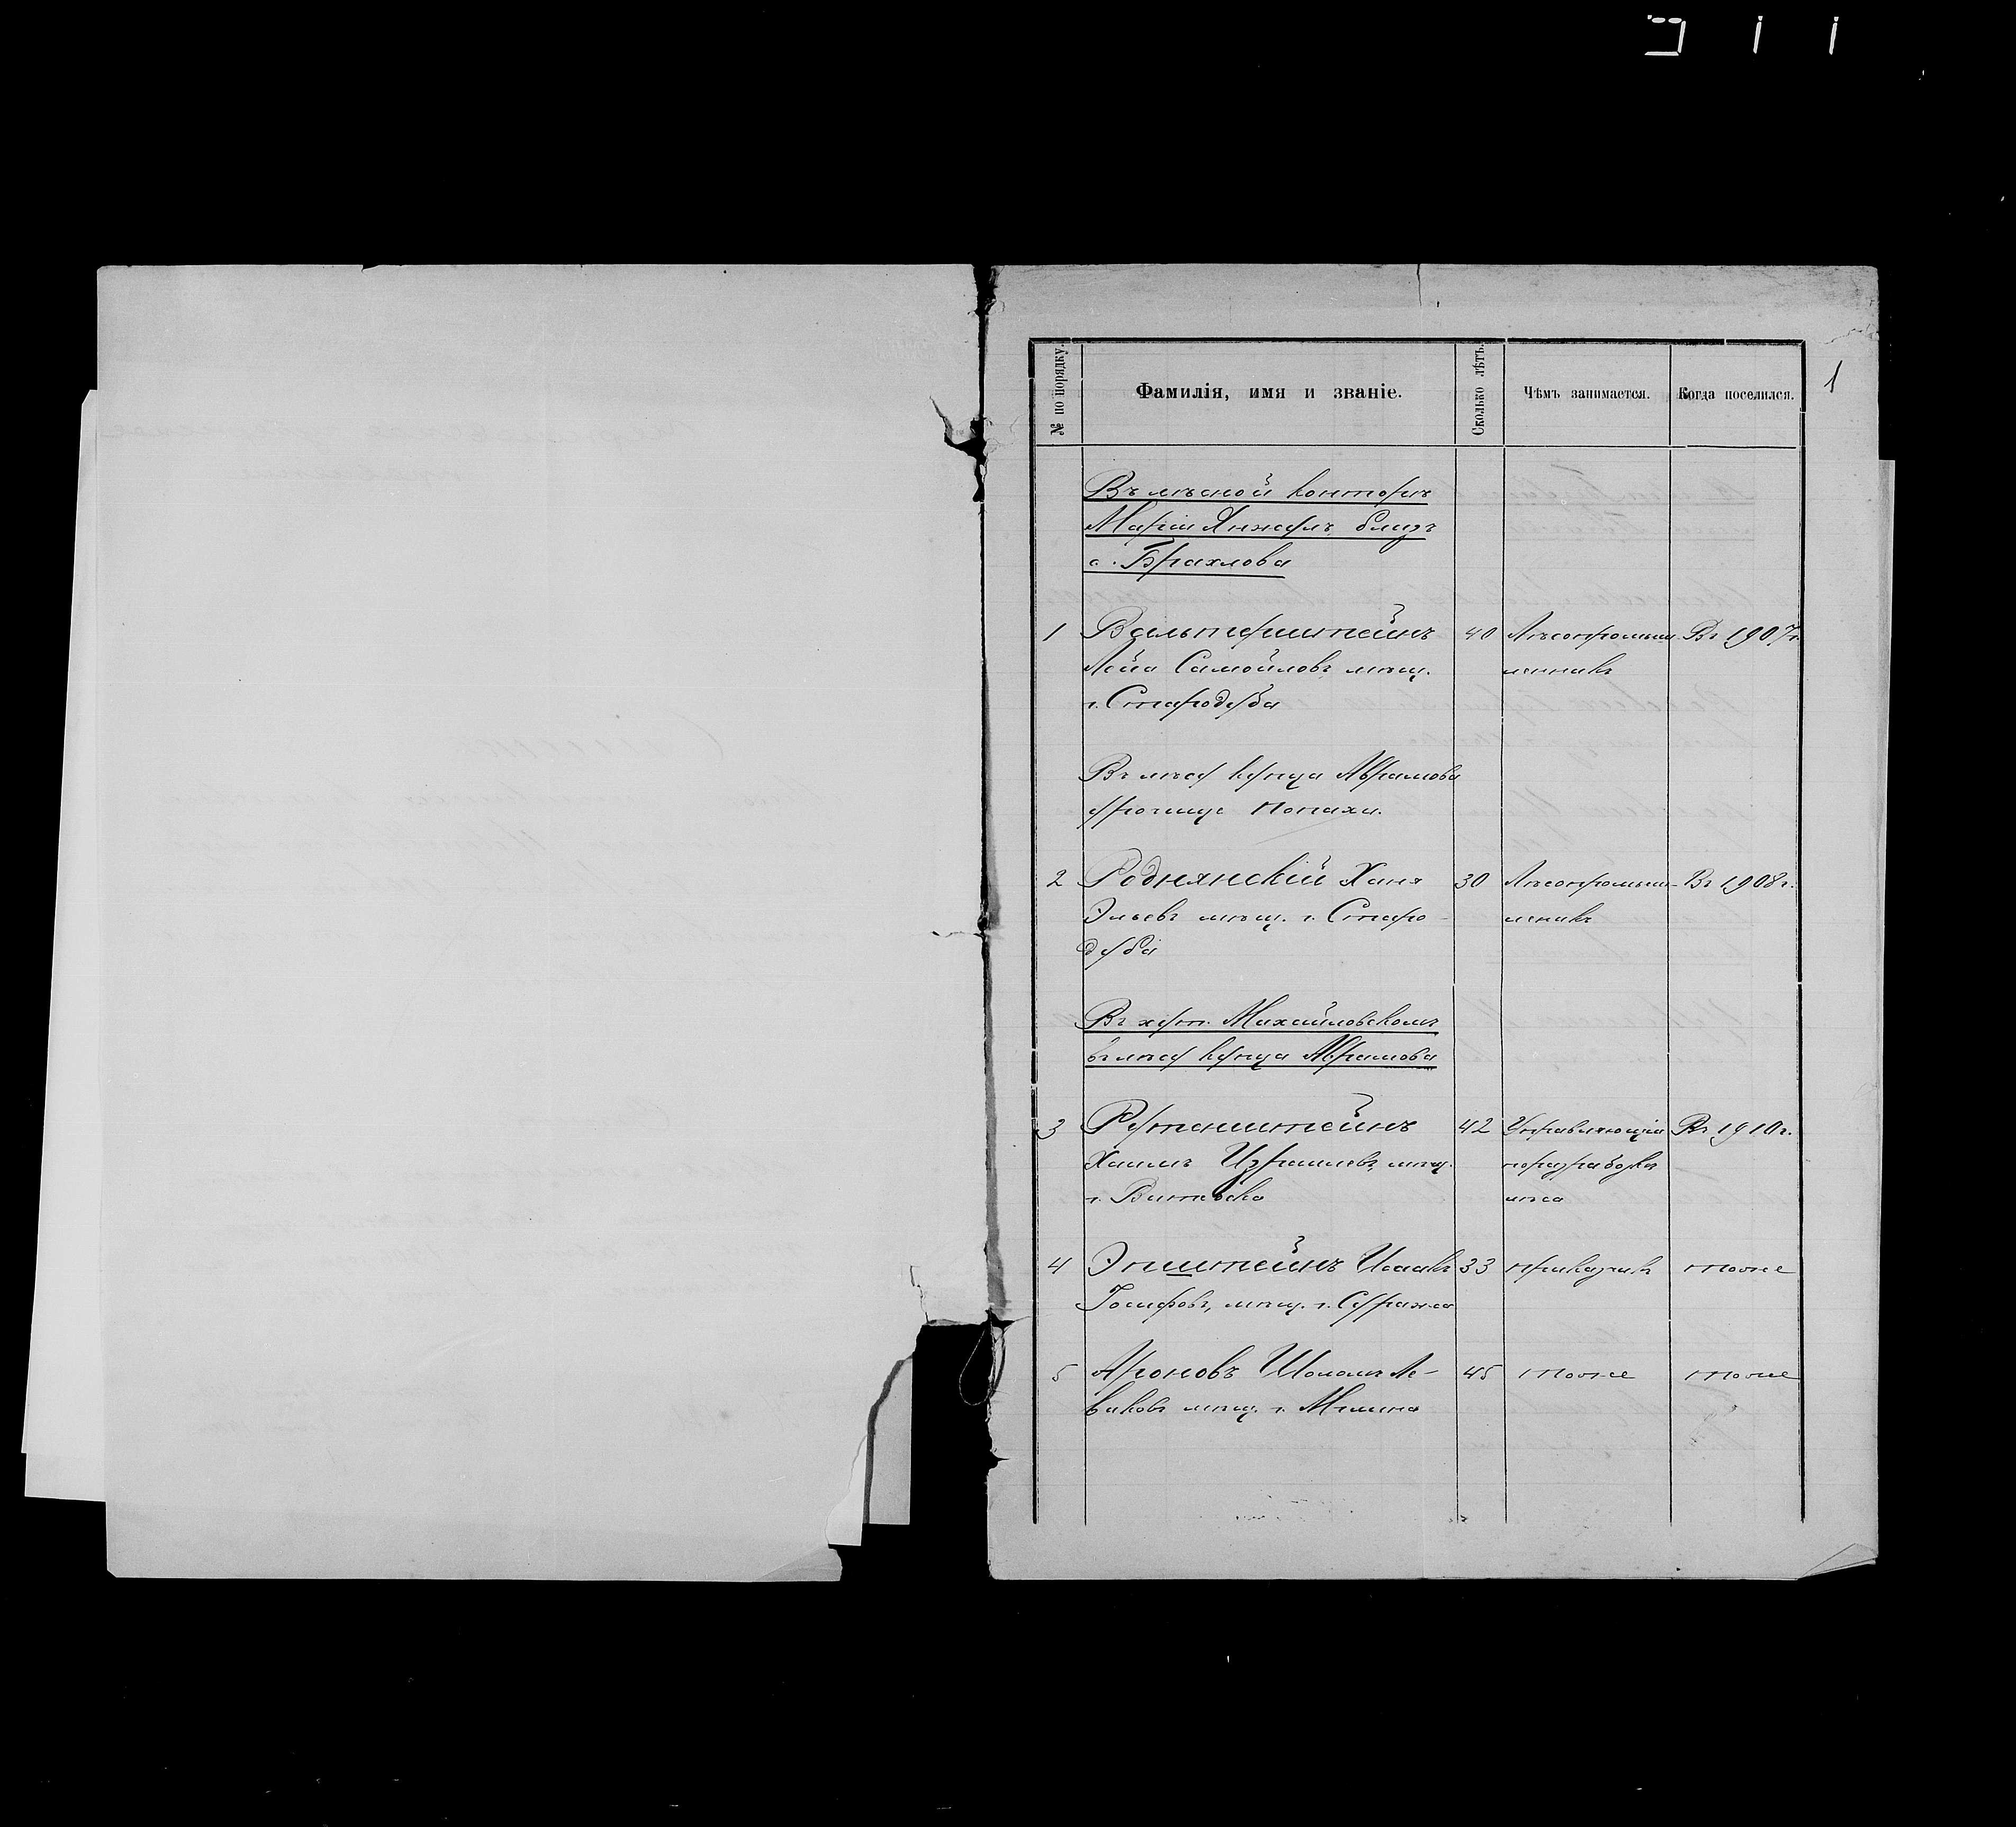 1
№ по порядку.
Фамилія, имя и званіе.
Сколько лѣтъ.
Чѣмъ занимается.
Когда поселился.
Въ лѣсной конторѣ
Маріи близъ
с. Брахлова
1 Вальперштейнъ 40 Лѣсопромыш- Въ 1907 г.
Лейба Самойловъ, мѣщ. ленникъ
г. Стародуба
Въ лѣсу купца Абрамова
урочище Попаха.
2 Роднянскій Хаия 30 Лѣсопромыш- Въ 1908 г.
Эльевъ мѣщ. г. Старо- леникъ
дуба
Въ хут. Михайловскомъ
въ лѣсу купца Абрамова
3 Рутенштейнъ 42 Управляющій Въ 1910 г.
Хаимъ Израилевъ, мѣщ. по разработкѣ
г. Витебска лѣса
4 Эпштейнъ Исаакъ 33 приказчикъ тоже
Іосифовъ, мѣщ. г. Суража
5 Ароновъ Шоломъ Ле- 45 тоже тоже
виковъ мѣщ. г. Мглина